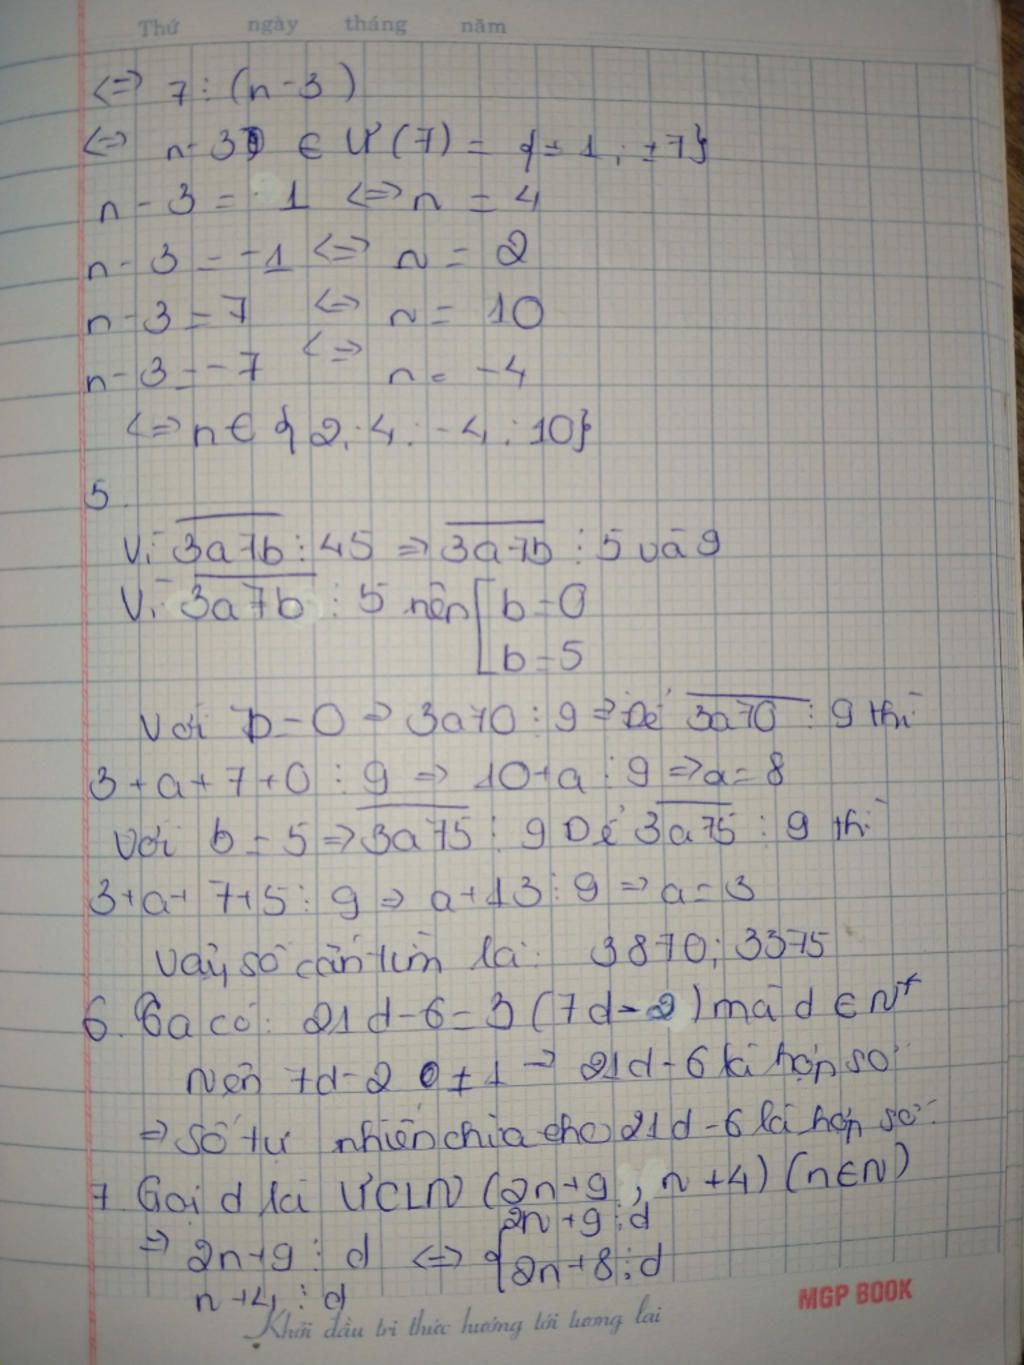 Thứ ngày tháng năm
<=> 7 ⋮ (n - 3)
<=> n - 3 ∈ Ư(7) = {±1; ±7}
n - 3 = 1 <=> n = 4
n - 3 = -1 <=> n = 2
n - 3 = 7 <=> n = 10
n - 3 = -7 <=> n = -4
<=> n ∈ {2; 4; -4; 10}
5.
Vì 3a7b ⋮ 45 => 3a7b ⋮ 5 và 9
Vì 3a7b ⋮ 5 nên [b = 0
b = 5
Với b = 0 => 3a70 ⋮ 9 => Để 3a70 ⋮ 9 thì
3 + a + 7 + 0 ⋮ 9 => 10 + a ⋮ 9 => a = 8
Với b = 5 => 3a75 ⋮ 9 Để 3a75 ⋮ 9 thì
3 + a + 7 + 5 ⋮ 9 => a + 13 ⋮ 9 => a = 3
Vậy số cần tìm là: 3870; 3375
6. Ta có: 21d - 6 = 3(7d - 2) mà d ∈ N*
Nên 7d - 2 ≠ 1 => 21d - 6 là hợp số
=> Số tự nhiên chia cho 21d - 6 là hợp số
7. Gọi d là ƯCLN (2n + 9, n + 4) (n ∈ N)
=> 2n + 9 ⋮ d <=> {2n + 9 ⋮ d
n + 4 ⋮ d 2n + 8 ⋮ d
MGP BOOK
Khởi đầu tri thức hướng tới tương lai